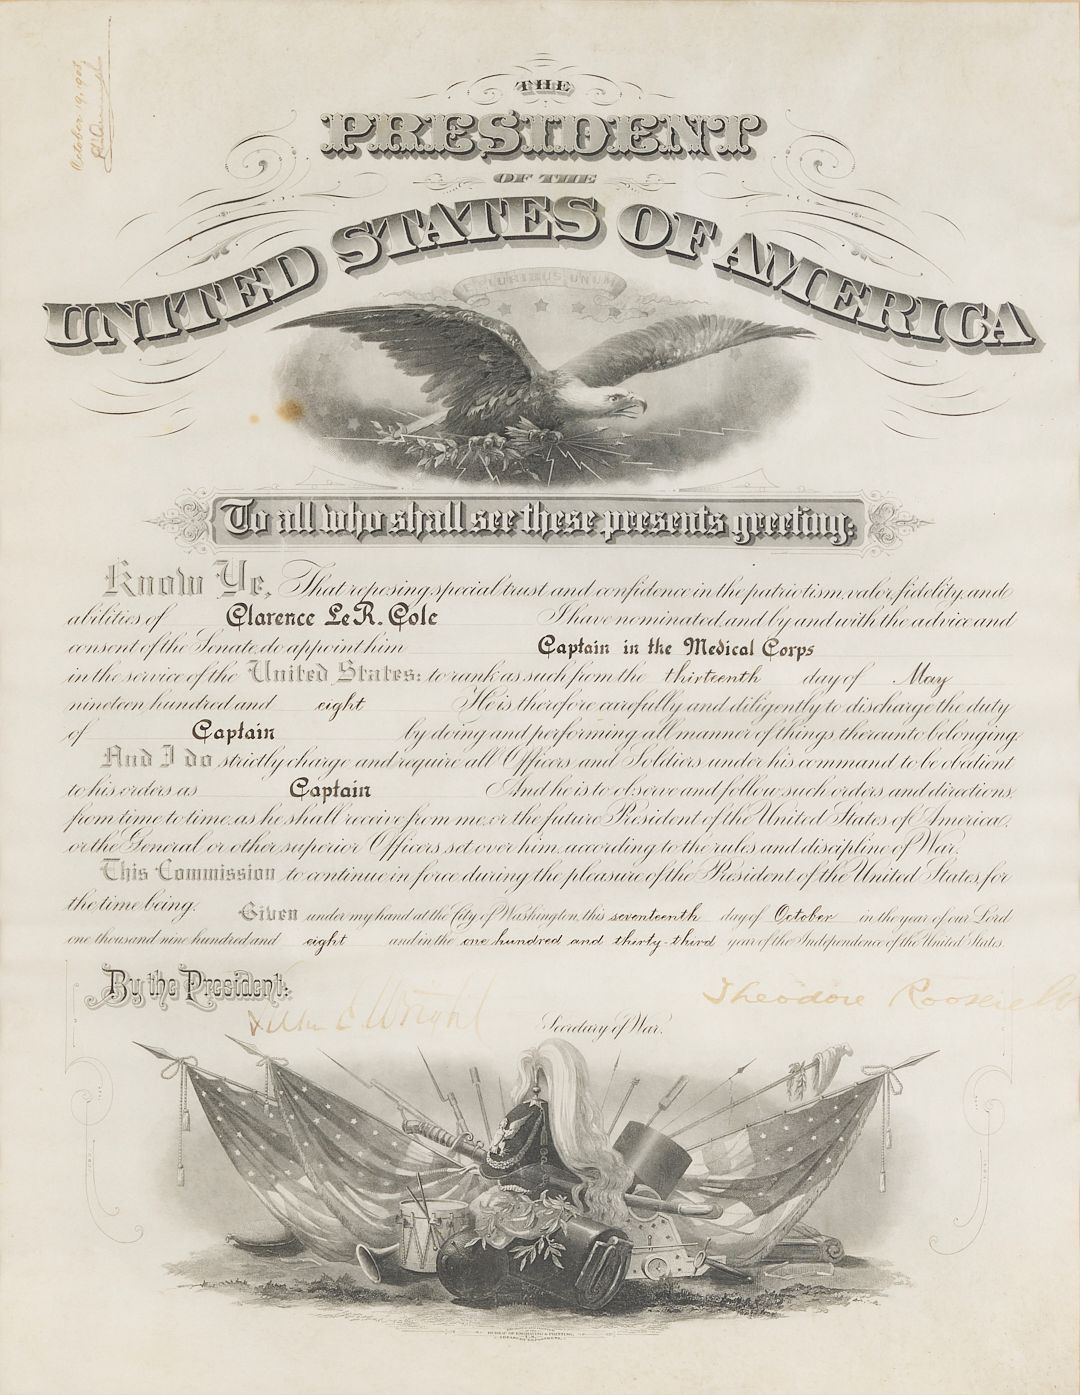 October 19, 1908,
THE
PRESIDENT
OF THE
UNITED STATES OF AMERICA
E PLURIBUS UNUM
To all who shall see these presents greeting:
Know Ye, That reposing special trust and confidence in the patriotism, valor, fidelity, and
abilities of Clarence Le R. Cole I have nominated, and by and with the advice and
consent of the Senate, do appoint him Captain in the Medical Corps
in the service of the United States: to rank as such from the thirteenth day of May
nineteen hundred and eight He is therefore carefully and diligently to discharge the duty
of Captain by doing and performing all manner of things thereunto belonging.
And I do strictly charge and require all Officers and Soldiers under his command to be obedient
to his orders as Captain And he is to observe and follow such orders and directions,
from time to time, as he shall receive from me, or the future President of the United States of America,
or the General or other superior Officers set over him, according to the rules and discipline of War.
This Commission to continue in force during the pleasure of the President of the United States, for
the time being.
Given under my hand at the City of Washington, this seventeenth day of October in the year of our Lord
one thousand nine hundred and eight and in the one hundred and thirty-third year of the Independence of the United States.
By the President:
Theodore Roosevelt
Wright
Secretary of War.
BUREAU OF ENGRAVING & PRINTING,